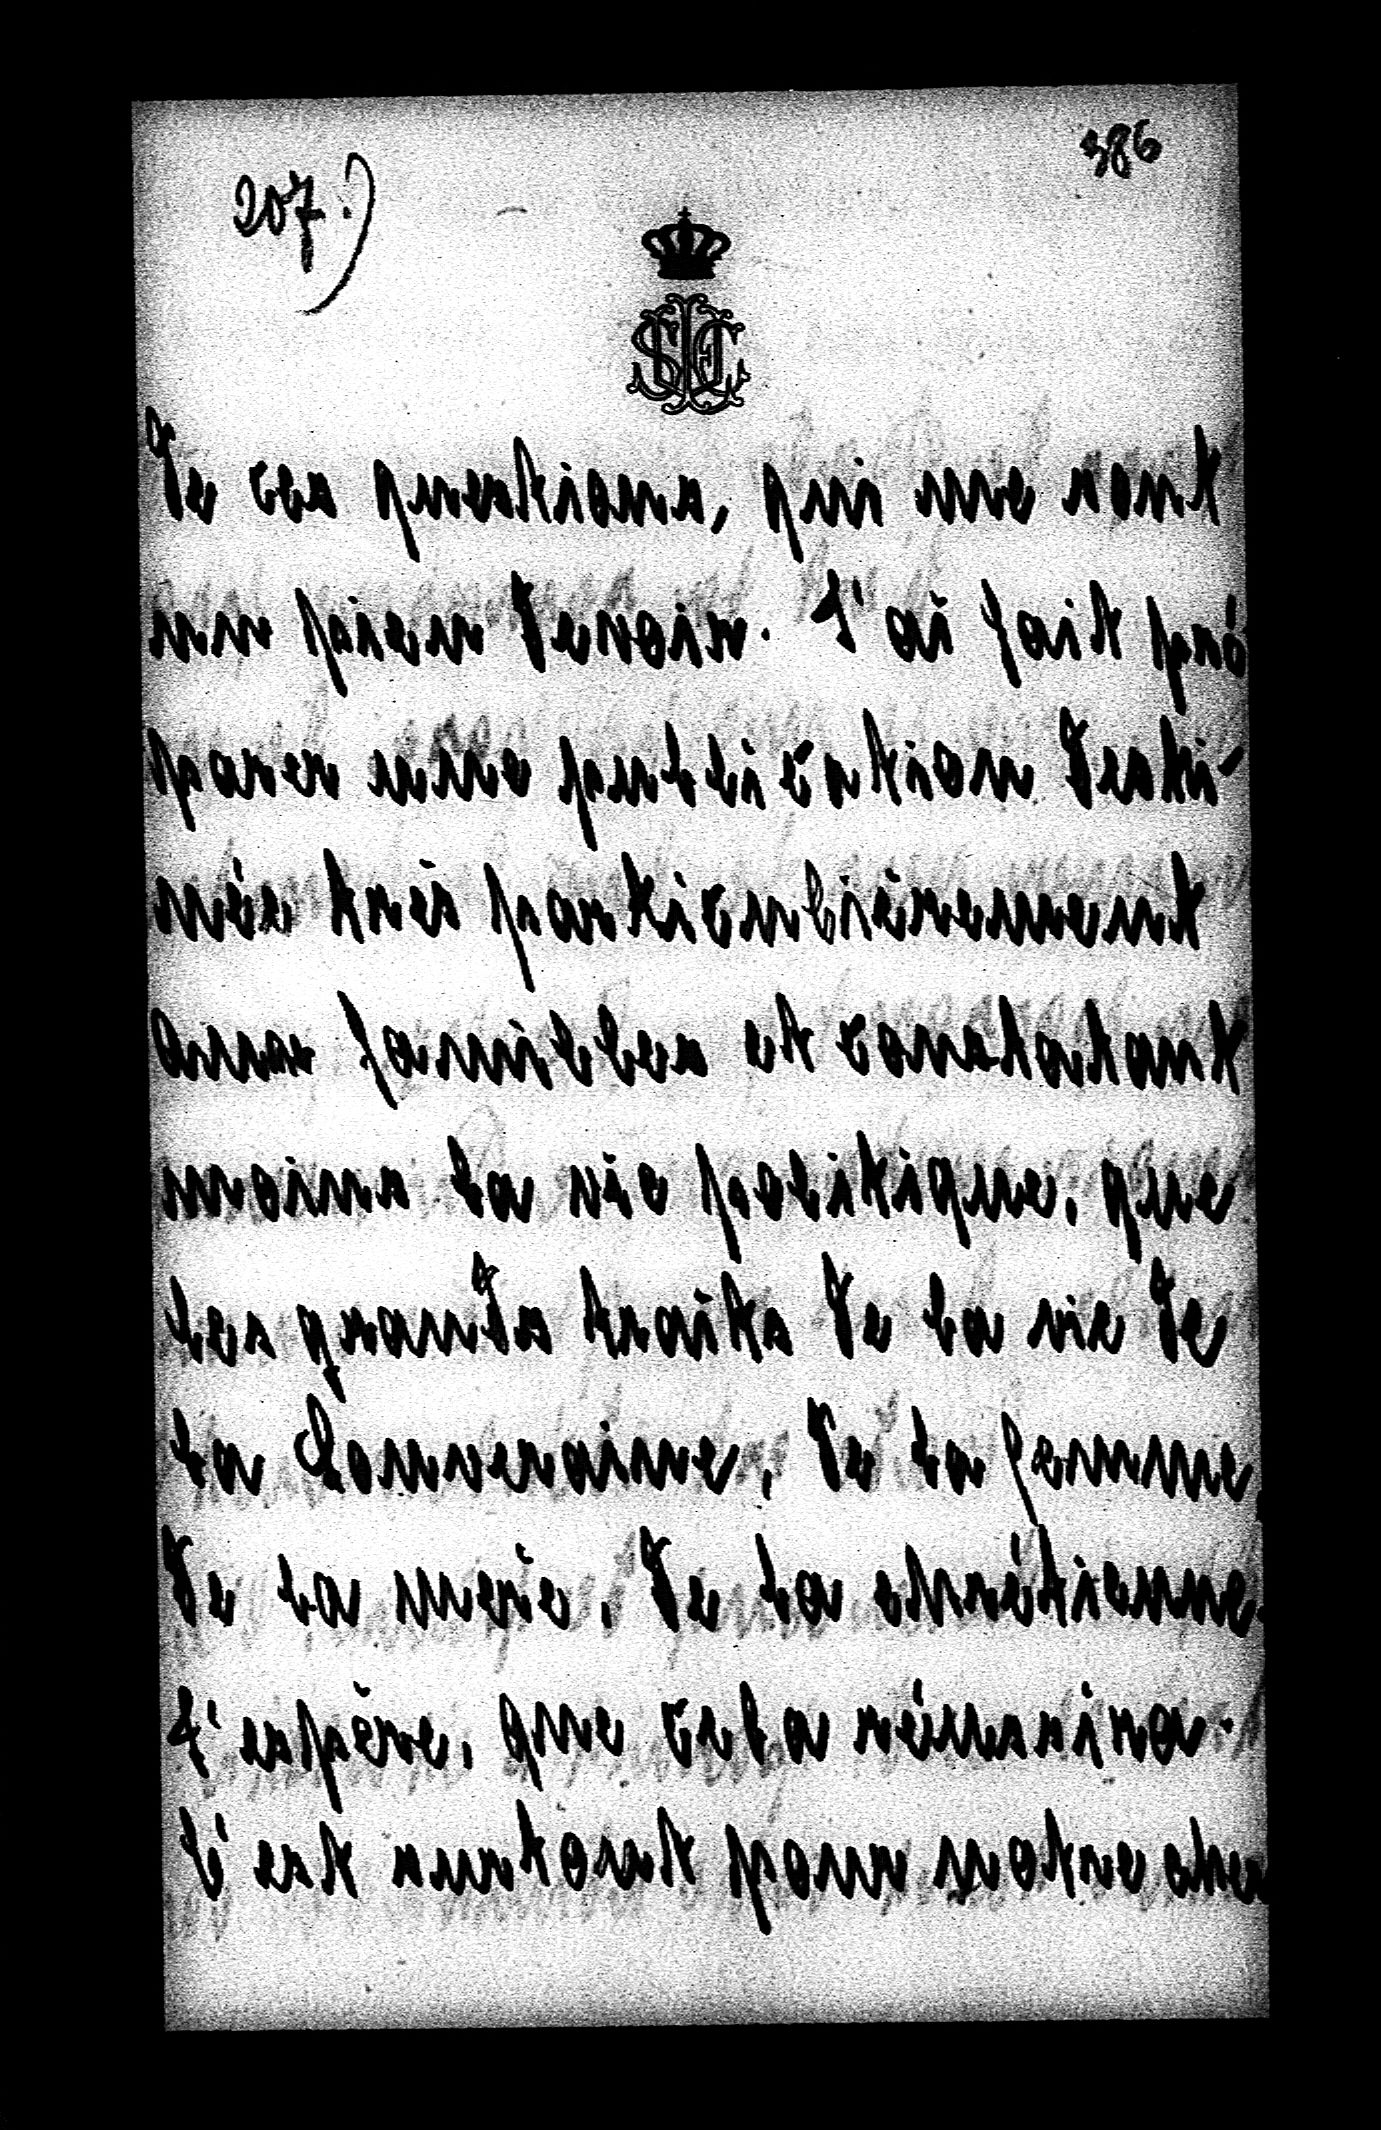 207.)
386
de ces questions, qui me sont
un pieux devoir. J'ai fait pré
parer une publication desti-
née très particulièrement
aux familles et constatant
moins la vie politique, que
les grands traits de la vie de
la Souveraine, de la femme
de la mère, de la chrétienne.
J'espère, que cela réussira.
C'est surtout pour notre cher